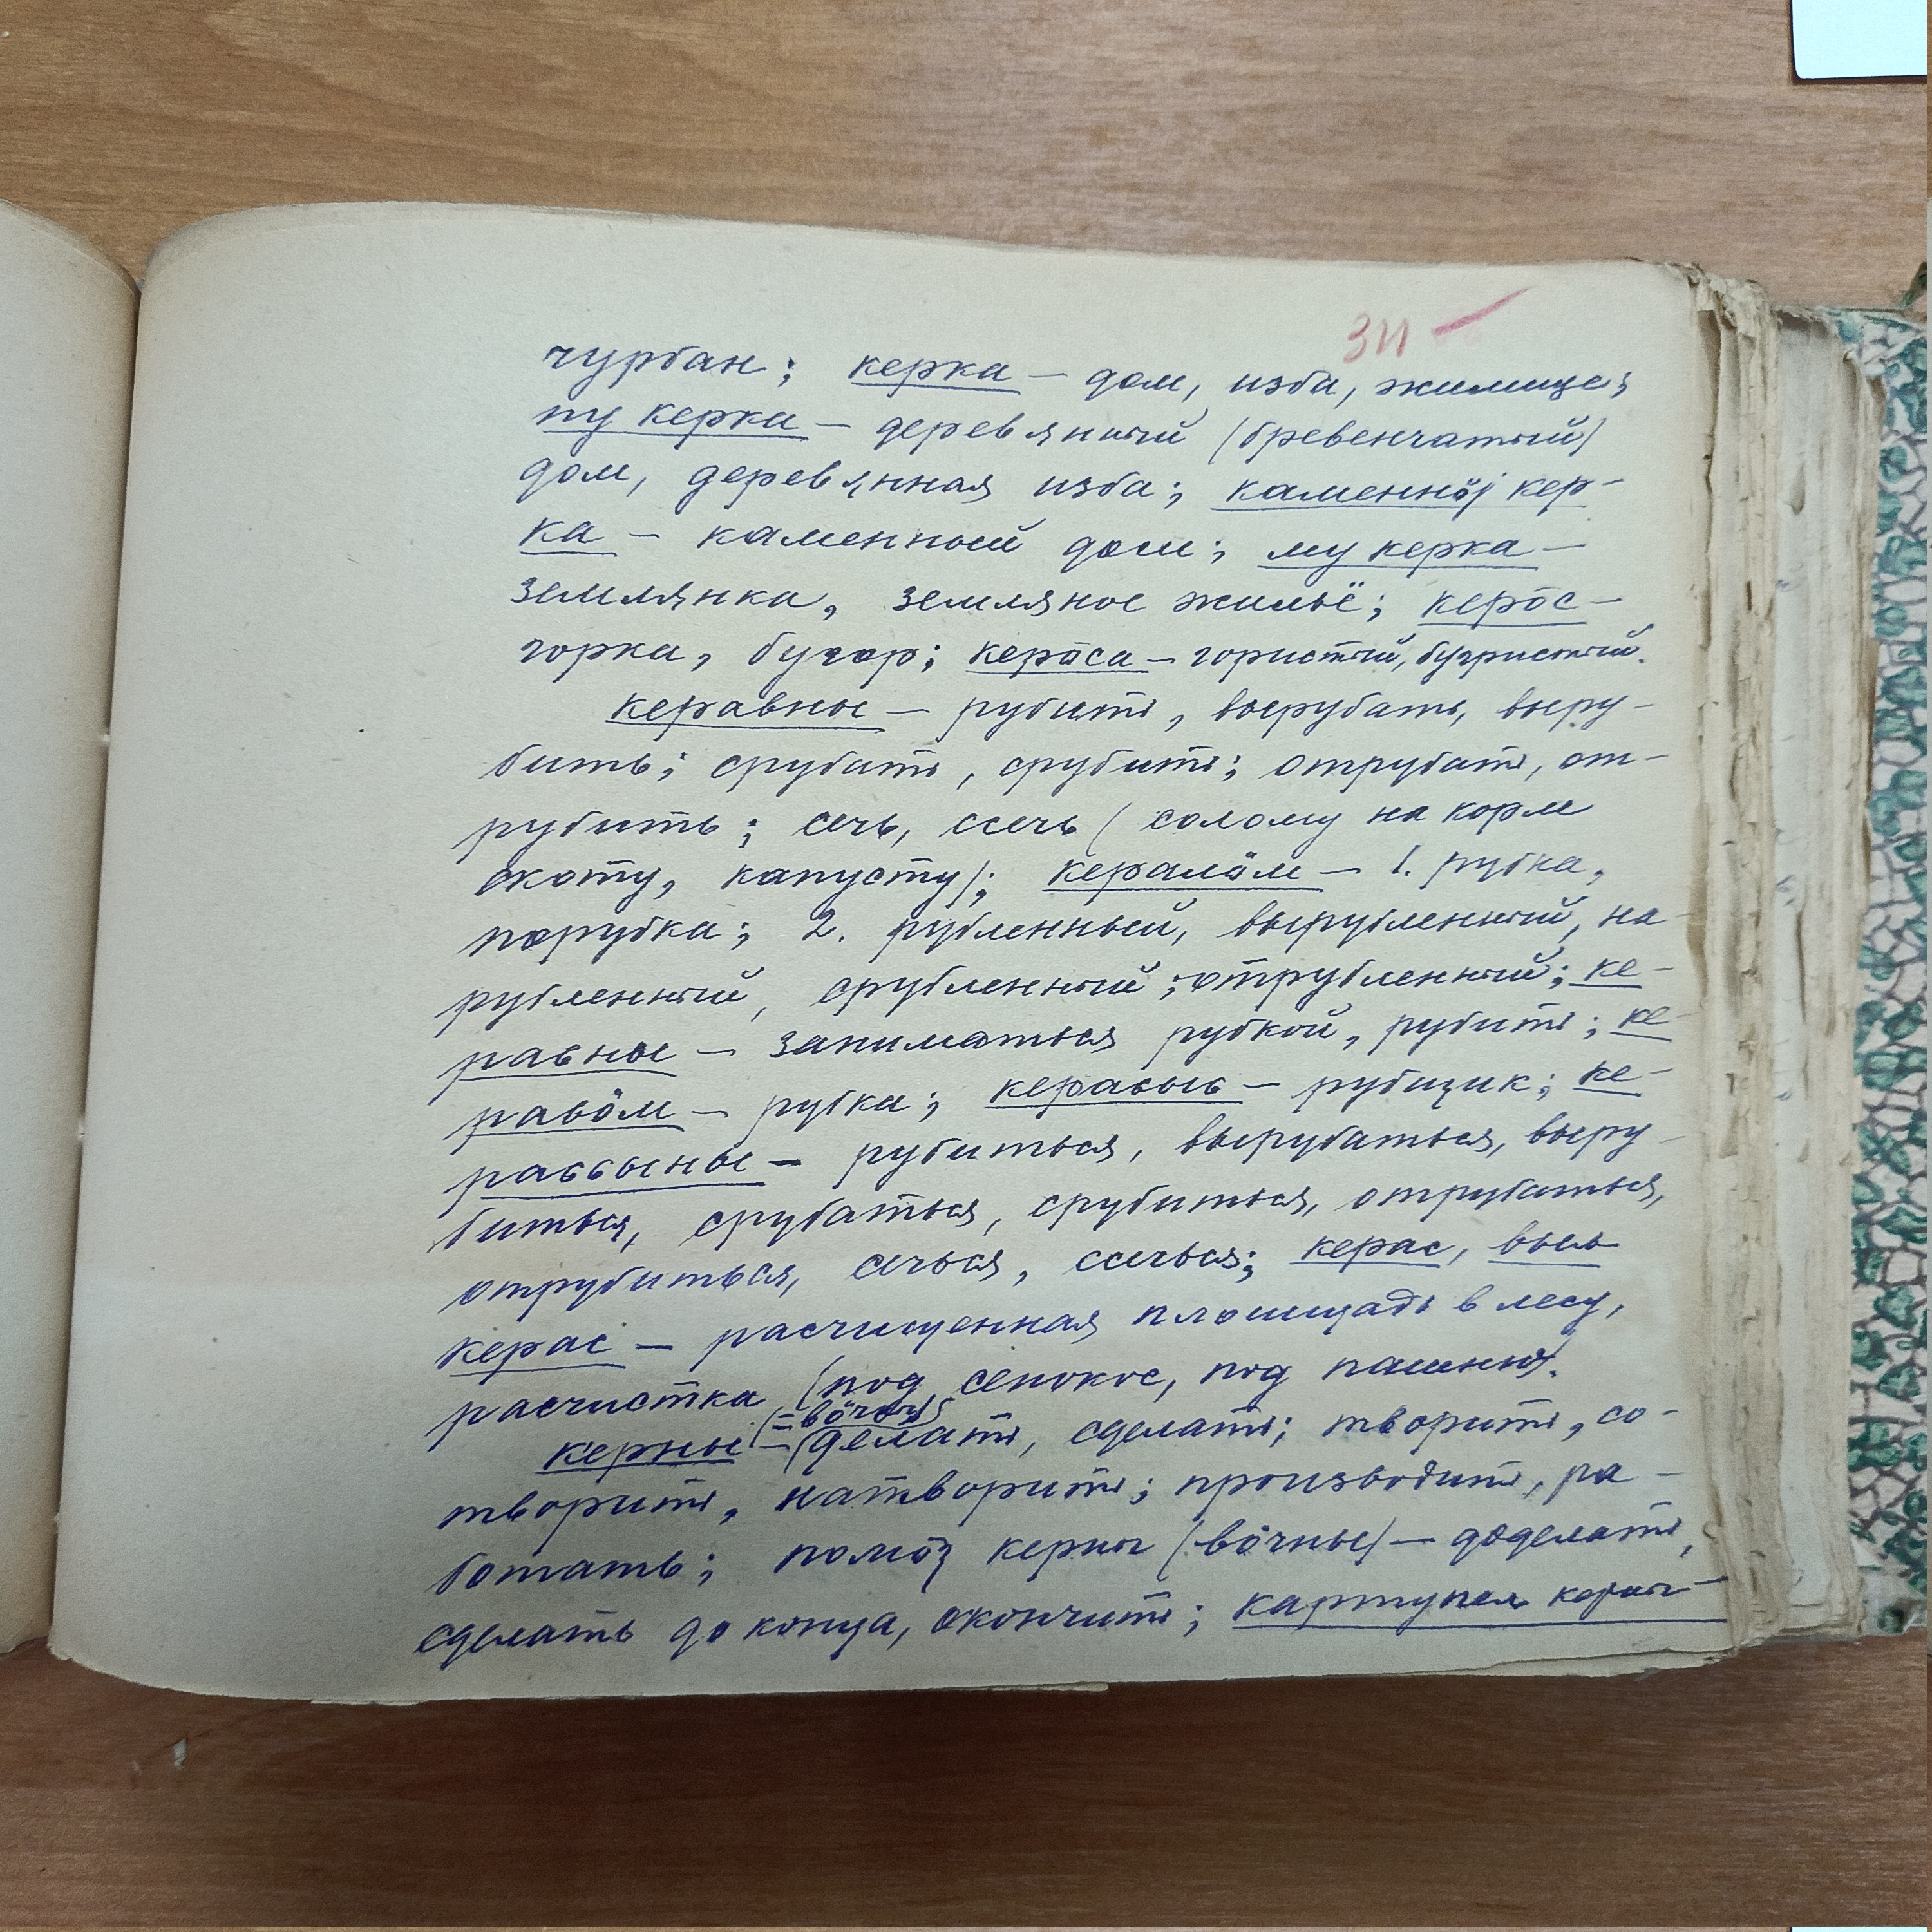 311
чурбан; керка – дом, изба, жилище;
пу керка – деревянный (бревенчатый)
дом, деревянная изба; каменнӧj кер-
ка – каменный дом; му керка –
землянка, земляное жильё; керӧс –
горка, бугор; керӧса – гористый, бугристый.
керавны – рубить, вырубать, выру-
бить; срубать, срубить; отрубать, от-
рубить; сечь, ссечь (солому на корм
скоту, капусту); кералӧм – 1. рубка,
порубка; 2. рубленный, вырубленный, на-
рубленный, срубленный; отрубленный; ке-
равны – заниматься рубкой, рубить; ке-
равӧм – рубка; керасьысь – рубщик; ке-
рассьыны – рубиться, вырубаться, выру-
биться, срубаться, срубиться, отрубаться,
отрубиться, сечься, ссечься; керас, выль
керас – расчищенная площадь в лесу,
расчистка (под сенокос, под пашню).
керны – (= вӧчны) делать, сделать; творить, со-
творить, натворить; производить, ра-
ботать; помӧз керны (вӧчны) – доделать,
сделать до конца, окончить; картупель керны –